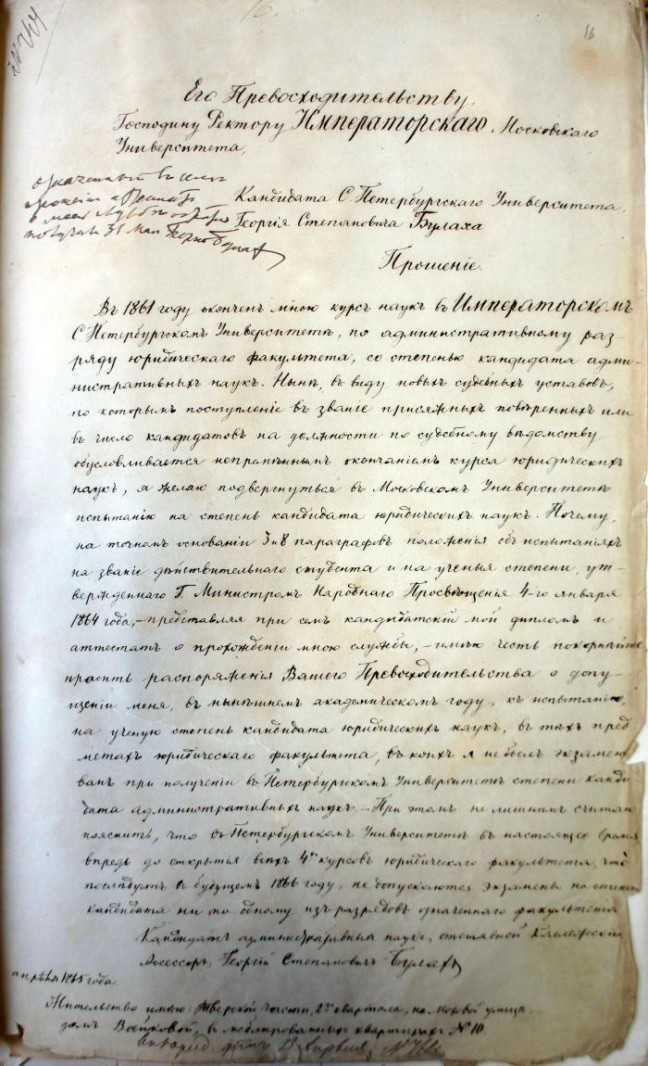 16
Его Превосходительству
Господину Ректору Императорскаго Московскаго
Университета,
Кандидата С Петербургскаго Университета
Георгія Степановича Булаха
Прошеніе.
Въ 1861 году окончен мною курсъ наукъ въ Императорскомъ
С Петербургскомъ Университетѣ, по административному раз-
ряду юридическаго факультета, со степенью кандидата адми-
нистративныхъ наукъ. Нынѣ, въ виду новыхъ судебныхъ уставовъ,
по которымъ поступленіе въ званіе присяжныхъ повѣренныхъ или
въ число кандидатовъ на должности по судебному вѣдомству
обусловливается непремѣннымъ окончаніемъ курса юридическихъ
наукъ, я желаю подвергнуться въ Московскомъ Университетѣ
испытанію на степень кандидата юридическихъ наукъ. Почему,
на точномъ основаніи 3 и 8 параграфовъ положенія объ испытаніяхъ
на званіе дѣйствительнаго студента и на ученыя степени, ут-
вержденнаго Г. Министромъ Народнаго Просвѣщенія 4-го января
1864 года, – представляя при семъ кандидатскій мой дипломъ и
аттестатъ о прохожденіи мною службы, – имѣю честь покорнѣйше
просить распоряженія Вашего Превосходительства о допу-
щеніи меня, въ нынѣшнемъ академическомъ году, къ испытанію,
на ученую степень кандидата юридическихъ наукъ, въ тѣхъ пред
метахъ юридическаго факультета, въ коихъ я не былъ экзамено
ванъ при полученіи въ Петербургскомъ Университетѣ степени канди
дата административныхъ наукъ. – При этомъ не лишнимъ считаю
пояснить, что въ С Петербургскомъ Университетѣ въ настоящее время
впредь до открытія всѣхъ 4хъ курсовъ юридическаго факультета, что
послѣдуетъ въ будущемъ 1866 году, не допускаются экзамены на степень
кандидата ни по одному изъ разрядовъ означеннаго факультета
Кандидатъ административныхъ наукъ, отставной Коллежскій
Ассессоръ, Георгій Степановичъ Булахъ
апрѣля 1865 года.
Жительство имѣю Тверской части, 2го квартала, на Моховой улицѣ
домъ Воейковой, въ меблированныхъ квартирахъ № 10